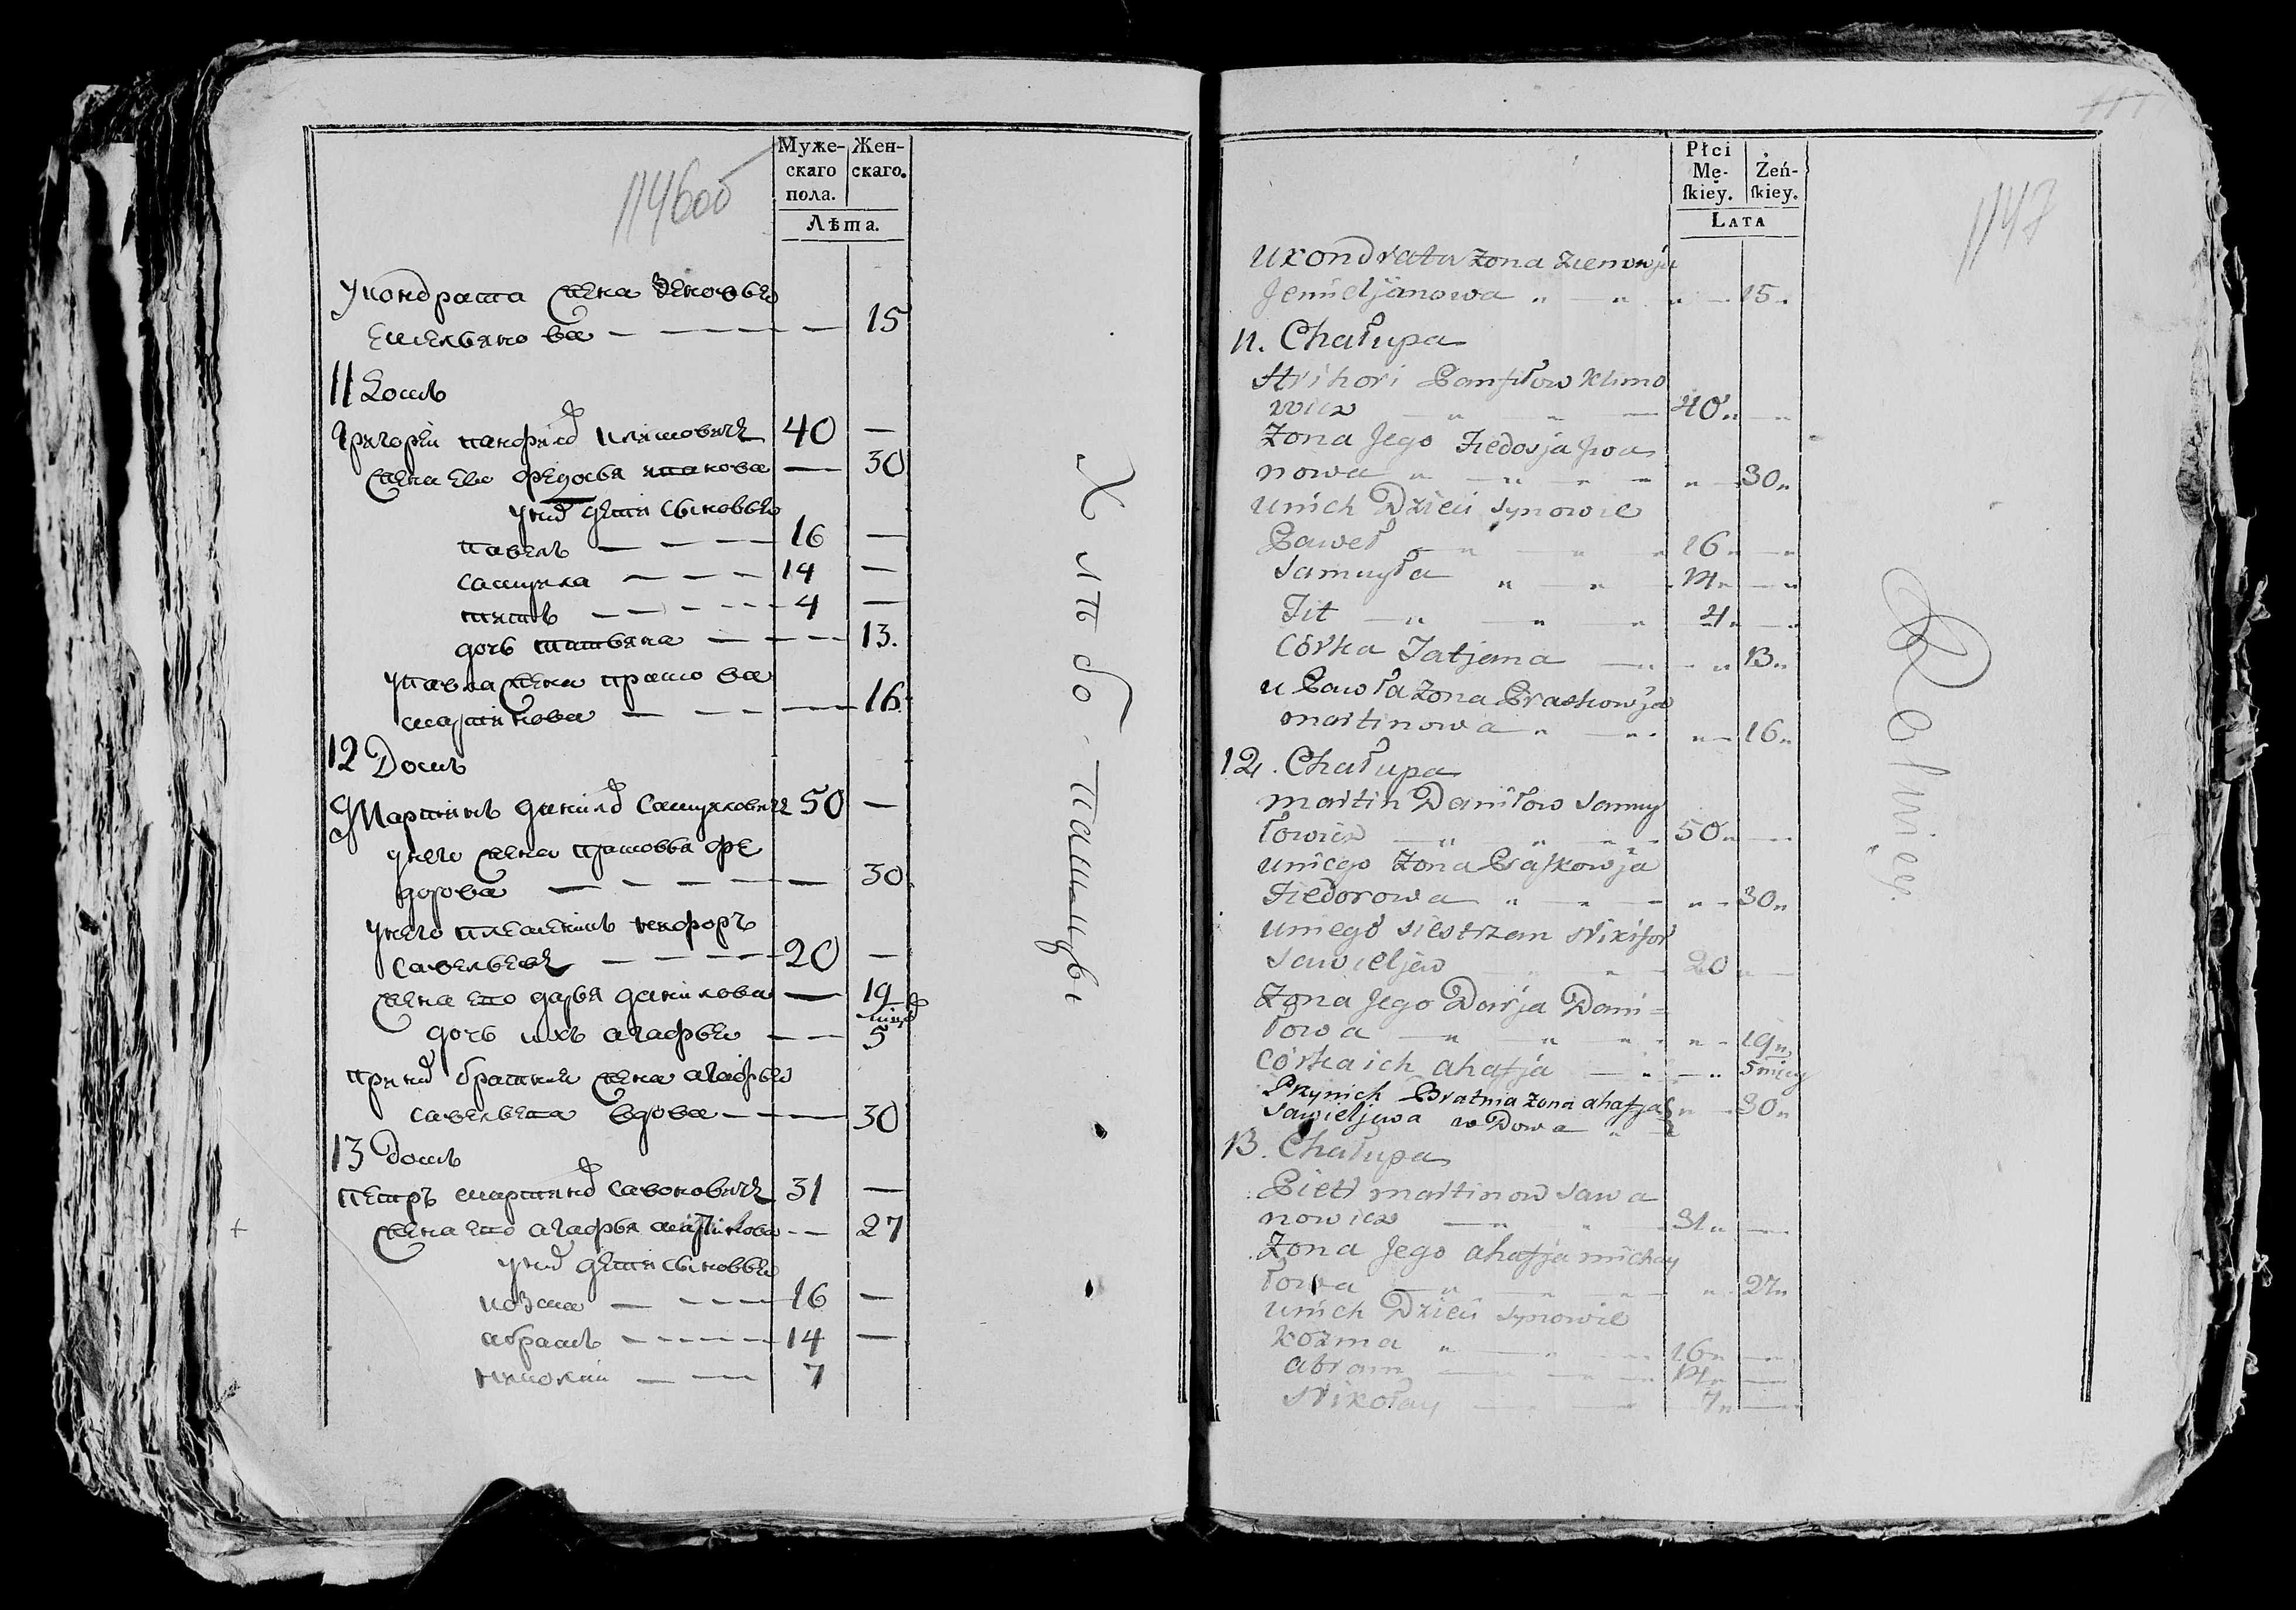 1146об
Муже- Жен-
скаго скаго.
пола.
Лѣта.
У кондрата жена Зеновья
Емельянова — 15
11 Домъ
Григорей панфилов климовичь 40 —
жена ево федосья иванова — 30
у них дети сыновья
павелъ — 16 —
самуила — 14 —
титъ — 4 —
дочь татьяна — 13.
у павла жена прасковья
мартинова — 16
12 Домъ
Мартинъ данилов самуиловичь 50 —
у него жена прасковья фе
дорова — 30
у него племеникъ никифоръ
савельевъ — 20 —
жена его дарья данилова — 19
дочь ихъ агафья — 5 мцов
при них братняя жена агафья
савельева вдова — 30
13 Домъ
петръ мартинов савоновичь 31 —
жена его агафья михайлова — 27
у них дети сыновья
козма — 16 —
абрамъ — 14 —
николай — 7
Хлебопашцы
Płci
Mę- Żeń-
ſkiey. ſkiey.
LATA
1147
u Kondrata Zona Zienowja
Jemieljanowa „ — „ 15„
11. Chałupa
Hrihori Panfiłow Klimo
wicz — 40„ —
Zona Jego Fiedosja Jwa
nowa „ — 30„
unich Dzieci synowie
Paweł — 16„ —
Samuyła „ — 14„ —
Tit — 4„ —
Córka Tatjana — 13„
u Pawła Zona Praskowja
martinowa „ — 16„
12. Chałupa
martin Daniłow Samuy
łowicz — 50„ —
uniego Zona Praſkowja
Fiedorowa „ — 30„
uniego siestrzan Nikifor
Sawieljew — 20 —
Zona Jego Darja Dani=
łowa — 19„
Córka ich ahafja — 5 miey
Przynich Bratnia Zona ahafja
Sawieljewa wDowa „ 30„
13. Chałupa
Pietr martinow Sawa
nowicz — 31„ —
Zona Jego ahafja michay
łowa — 27„
unich Dzieci synowie
Kozma „ — 16„ —
abram — 14„ —
Nikołay — 7„ —
Rolnicy.